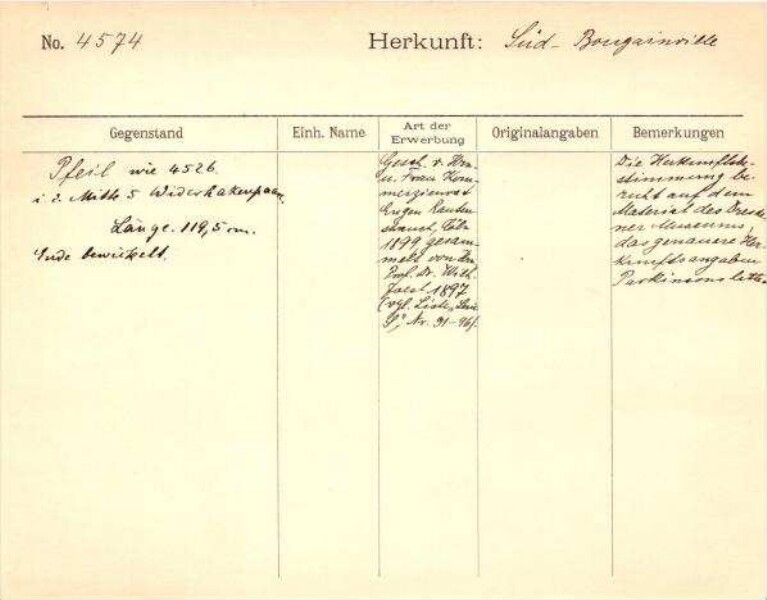 No. 4574 Herkunft: Süd-Bougainville
Gegenstand Einh. Name Art der Erwerbung Originalangaben Bemerkungen
Pfeil wie 4526.
i. d. Mitte 5 Widerhakenpaare
Länge. 119,5 cm.
Ende bewickelt.
Gesch. v. Hrn
u. Frau Kom-
merzienrat
Eugen Rauten-
strauch, Cöln
1899, gesam-
melt von Hrn
Prof. Dr. Wilh.
Joest 1897
(vgl. Liste, Serie
S", Nr. 31-96).
Die Herkunftsbe-
stimmung be-
ruht auf dem
Material des Dresd-
ner Museums,
das genauere Her-
kunftsangaben
Parkinsons